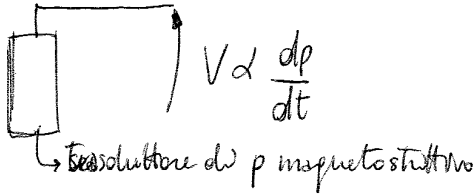 V ∝ dp/dt
trasduttore di p magnetostrittivo